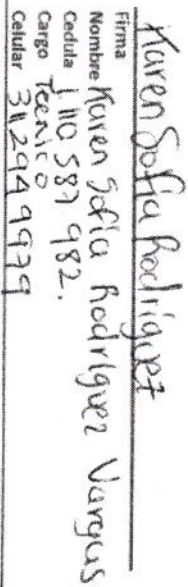 Karen Sofia Rodríguez
Firma
Nombre Karen Sofia Rodríguez Vargas
Cedula 1 110 587 982.
Cargo Tecnico
Celular 3112949979